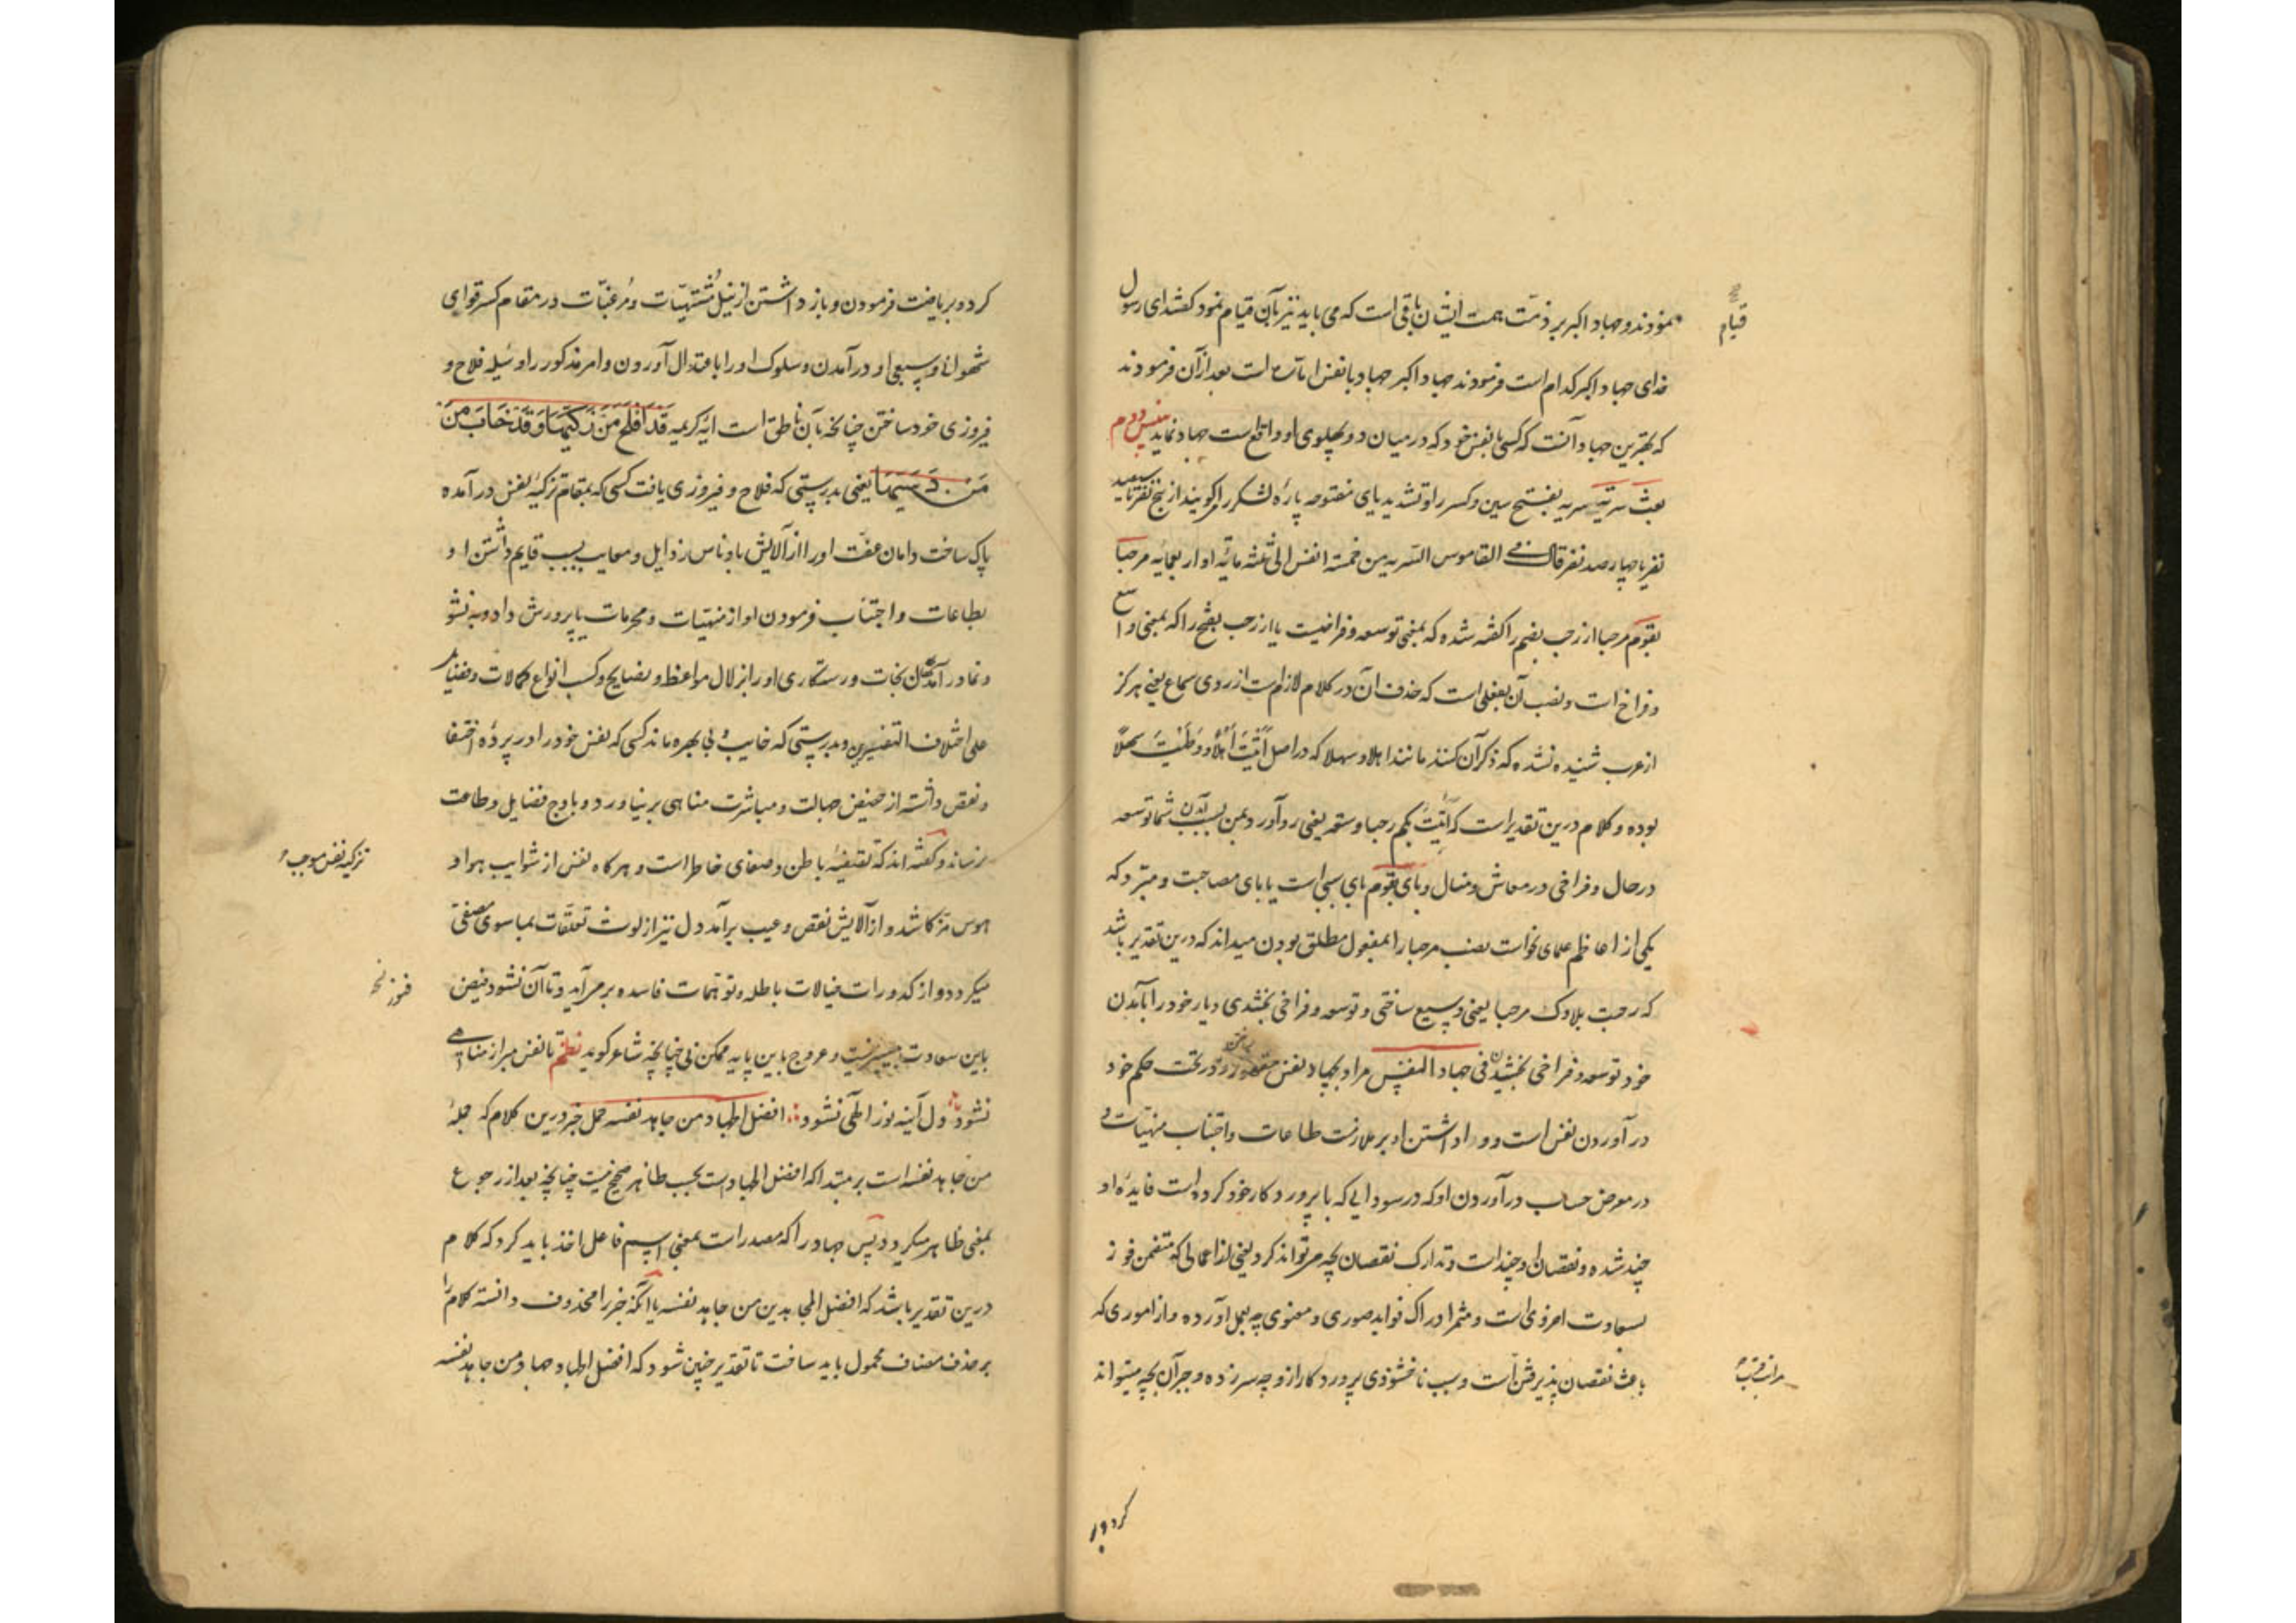 نمودند و جهاد اکبر بر ذمّت همت ایشان باقی است که می باید نیز بآن قیام نمود گفتند ای رسول
قیام
خدای جهاد اکبر کدام است فرمودند جهاد اکبر جهاد با نفس اماره است بعد از آن فرمودند
که بهترین جهاد آنست که کسی با نفس خود که در میان دو پهلوی او واقع است جهاد نماید
بعث سریّه سریه بفتح سین و کسر را و تشدید یای مفتوحه پارهٔ لشکر را گویند از پنج نفر تا سیصد
نفر یا چهارصد نفر قال فی القاموس السّریه من خمسة انفس الی ثلثه مائة او اربعمایه مرحبا
بقوم مرحبا از رحب بضم را گفته شده که بمعنی توسعه و فراخیست یا از رحب بفتح را که بمعنی واسع
و فراخ است و نصب آن بفعلی است که حذف آن در کلام لازم است از روی سماع یعنی هرگز
از عرب شنیده نشده که ذکر آن کنند مانند اهلا و سهلا که در اصل أتیتَ أهلاً و وَطَئتَ سهلاً
بوده و کلام درین تقدیر است که أتیتُ بکم رحبا و سعة یعنی رو آورد بمن بسبب آمدن شما توسعه
در حال و فراخی در معاش و منال و بای بقوم بای سببی است یا بای مصاحبت و مبرّد که
یکی از اعاظم علمای نحو است نصب مرحبا را بمفعول مطلق بودن میداند که درین تقدیر باشد
که رحبت بلادک مرحبا یعنی وسیع ساختی و توسعه و فراخی بخشیدی دیار خود را بآمدن
خود توسعه و فراخی بخشیدن فی جهاد النفس مراد بجهاد نفس مقهور و در تحت حکم خود
در آوردن نفس است و وا داشتن او بر ملازمت طاعات و اجتناب منهیّات و
در معرض حساب در آوردن او که در سودایی که با پروردکار خود کرده است فایدهٔ او
چند شده و نقصان او چند است و تدارک نقصان بچه می تواند کرد یعنی از اعمالی که متضمن فوز
بسعادت اخروی است و مثمر ادراک فواید صوری و معنوی چه بعمل آورده و از اموری که
باعث نقصان پذیرفتن است و سبب ناخشنودی پروردکار ازو چه سر زده و جبر آن بچه میتواند
کرد و بر
کرد و بریاضت فرمودن و باز داشتن از نیل مُشتهیّات و مُرغبّات در مقام کسر قوای
شهوانی و سبعی او در آمدن و سلوک او را باعتدال آوردن و امر مذکور را وسیله فلاح و
فیروزی خود ساختن چنانچه بآن ناطق است ایه کریمه قَد اَفلَحَ مَن زَکّیها وَ قَد خابَ مَن
مَن دَسّیها یعنی بدرستی که فلاح و فیروزی یافت کسی که بمقام تزکیهٔ نفس در آمده
پاک ساخت دامان عفّت او را از آلایش بادناس رذایل و معایب بسبب قایم داشتن او
بطاعات و اجتناب فرمودن او از منهیّات و محرمات یا پرورش داد و به نشو
و نما در آمد نجات و رستکاری او را بزلال مواعظ و نصایح و کسب انواع کمالات و فضایل
علی اختلاف التفسیرین و بدرستی که خایب و بی بهره ماند کسی که نفس خود را در پردهٔ اختفا
و نقص داشته از حضیض جهالت و مباشرت مناهی بر نیاورد و باوج فضایل و طاعت
نرساند و کفته اند که تصفیهٔ باطن و صفای خاطر است و هرکاه نفس از شوایب هوا و
تزکیه نفس موجب
هوس مزکا شد و از آلایش نقص و عیب برآمد دل نیز از لوث تعلّقات بماسوی مصفّی
میکردد و از کدورات خیالات باطله و توهّمات فاسده بر می آید و تا آن نشود فیض
فوز نخ
باین سعادت میسر نیست و عروج باین پایه ممکن نی چنانچه شاعر کوید نظم تا نفس مبرا ز مناهی
نشود دل آینه نور الهی نشود افضل الجهاد من جاهد نفسه حمل خبر درین کلام که جملهٔ
من جاهد نفسه است بر مبتدا که افضل الجهاد است بحسب ظاهر صحیح نیست چنانچه بعد از رجوع
بمعنی ظاهر میکردد پس جهاد را که مصدر است بمعنی اسم فاعل اخذ باید کرد که کلام
درین تقدیر باشد که افضل المجاهدین من جاهد نفسه یا آنکه خبر را محذوف دانسته کلام را
بر حذف مضاف محمول باید ساخت تا تقدیر چنین شود که افضل الجهاد جهاد من جاهد نفسه